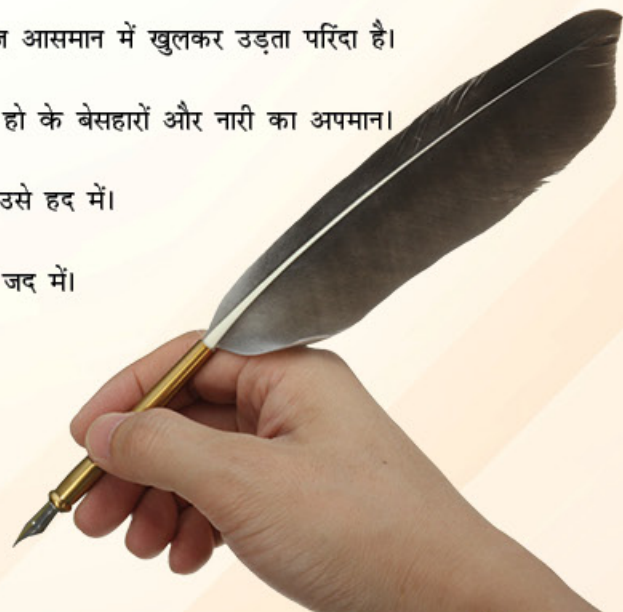 आसमान में खुलकर उड़ता परिंदा है।
हो के बेसहारों और नारी का अपमान।
उसे हद में।
जद में।